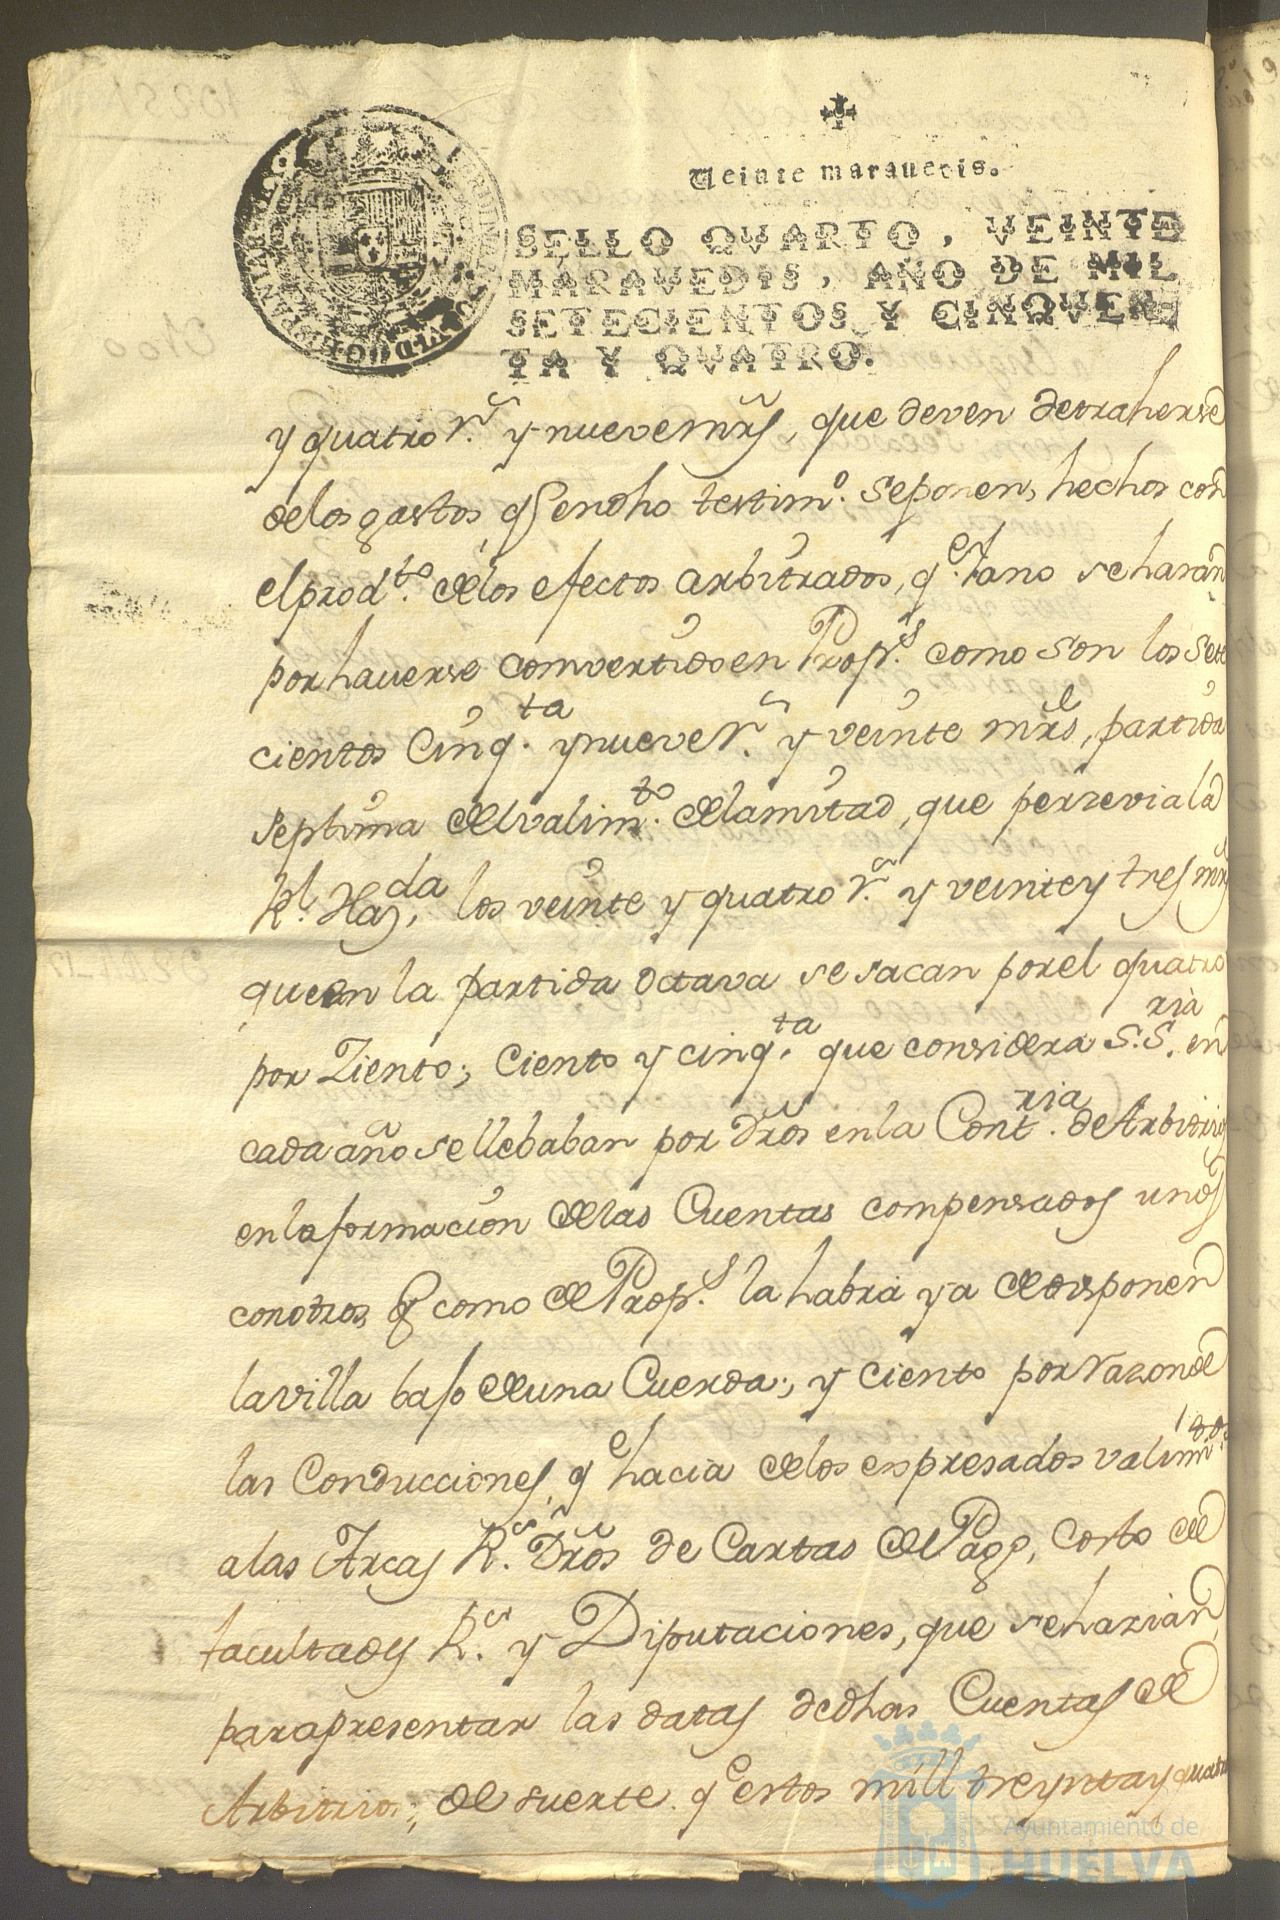 Veinte marauedis.
SELLO QVARTO, VEINTE
MARAVEDIS, AÑO DE MIL
SETECIENTOS Y CINQVEN
TA Y QVATRO.
y quatro r.s y nueve mrs, que deven detraherse
de los gastos, q en dho testim.o se ponen, hechos con
el prod.to de los efectos arbitrados, q.e ya no se harán
por haverse comvertido en Prop.s como son los sete
cientos Cinq.ta y nueve r.s y veinte mrs, partida
septima del valim.to de la mitad, que perzevia la
R.l Haz.da, los veinte y quatro r.s y veinte y tres mrs
que en la partida octava se sacan por el quatro
por Ziento; ciento y cinq.ta que considera S.S.ria en
cada año se llebaban por dros en la Cont.ria de Arbitrios
en la formacion de las Cuentas compensados unos
con otros, q como de Prop.s la habrá ya de disponer
la villa bajo de una Cuerda; y ciento por razon de
las Conducciones, q.e hacia de los expresados valim.tos
a las Arcas R.s Dros de Cartas de Pago, costo de
facultades R.s y Diputaciones, que se hazian
para presentar las datas de dhas Cuentas de
Arbitrios; de suerte q.e estos mill treynta y quatro
Ayuntamiento de
HUELVA